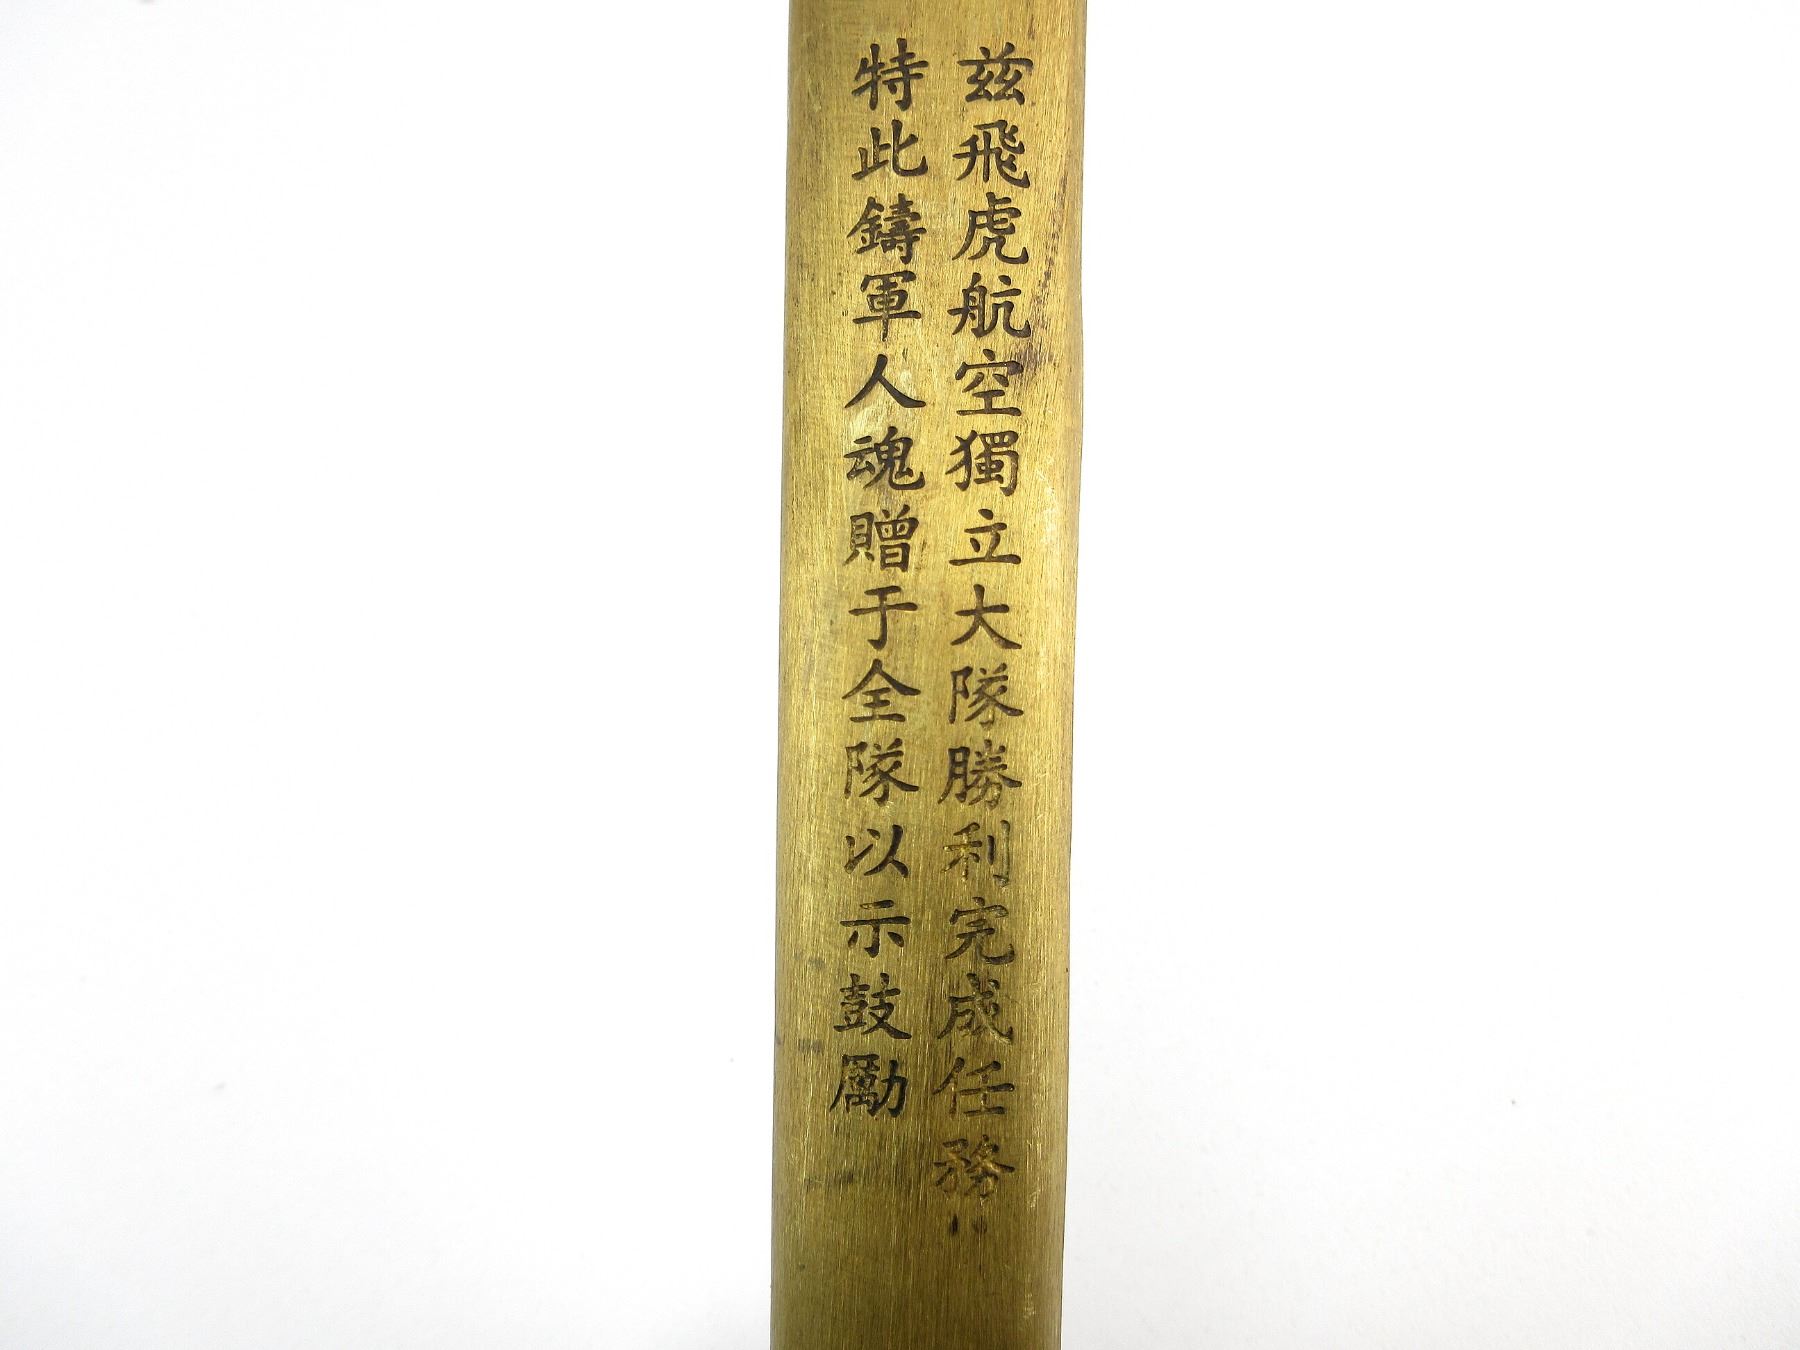 茲飛虎航空獨立大隊勝利完成任務
特此鑄軍人魂贈于全隊以示鼓勵